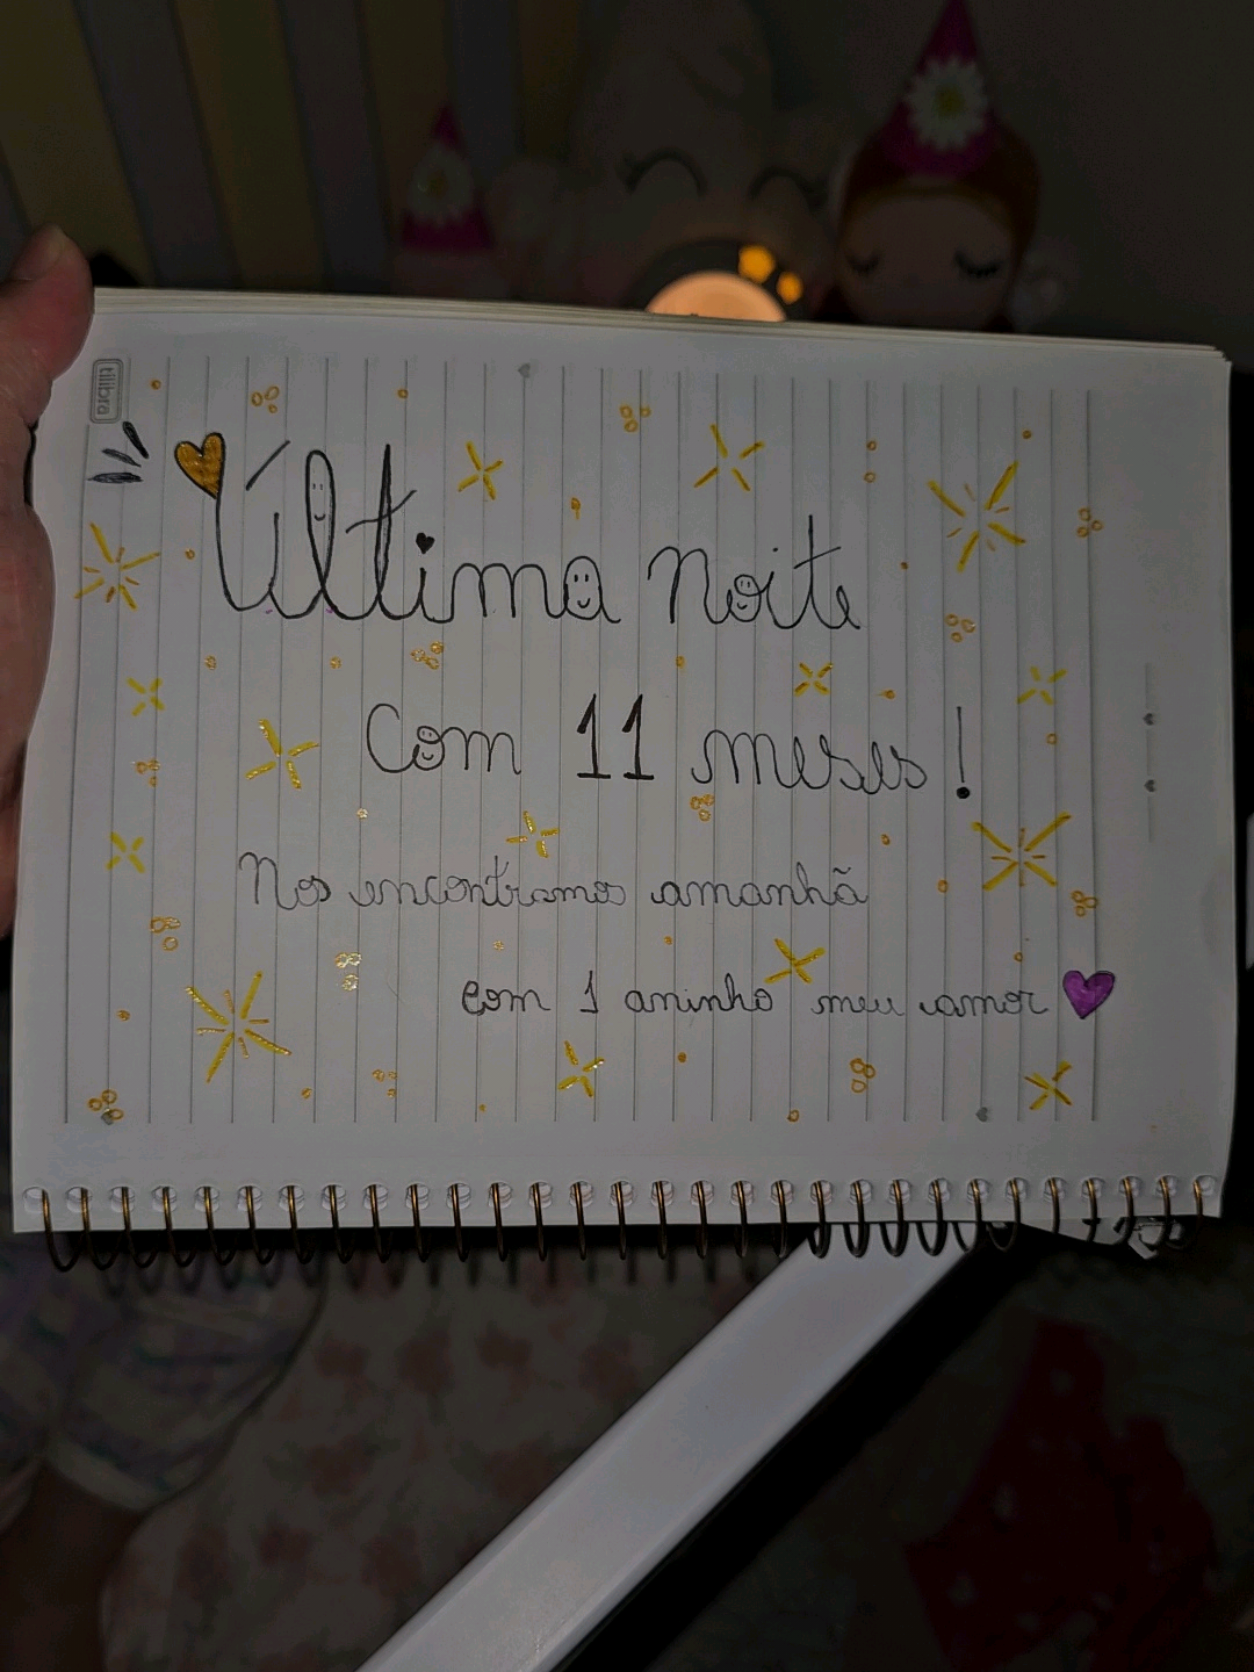 tilibra
Última noite
com 11 meses!
Nos encontramos amanhã
com 1 aninho meu amor